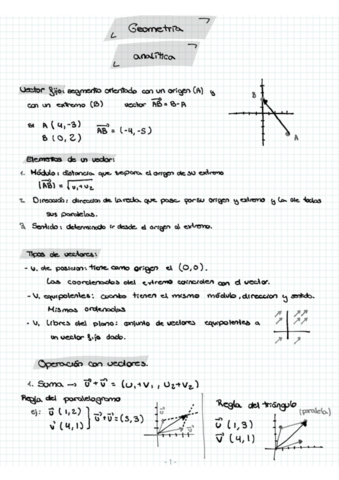 Geometría
analítica
Vector fijo: segmento orientado con un origen (A) y
con un extremo (B) vector AB = B-A
ej: A (4, -3)
B (0, 2)
AB = (-4, -5)
B
A
Elementos de un vector:
1. Módulo: distancia que separa el origen de su extremo
|AB| = √u₁+u₂
2. Dirección: dirección de la recta que pasa por su origen y extremo y la de todas
sus paralelas.
3. Sentido: determinado ir desde el origen al extremo.
Tipos de vectores:
- V. de posición: tiene como origen el (0,0).
Las coordenadas del extremo coinciden con el vector.
- V. equipolentes: cuando tienen el mismo módulo, dirección y sentido.
Mismas ordenadas
- V. libres del plano: conjunto de vectores equipolentes a
un vector fijo dado.
Operación con vectores.
1. Suma → u + v = (u₁+v₁, u₂+v₂)
Regla del paralelogramo
ej: u (1,2)
v (4,1)
u+v = (5,3)
Regla del triángulo
(paralela)
u (1,3)
v (4,1)
-1-